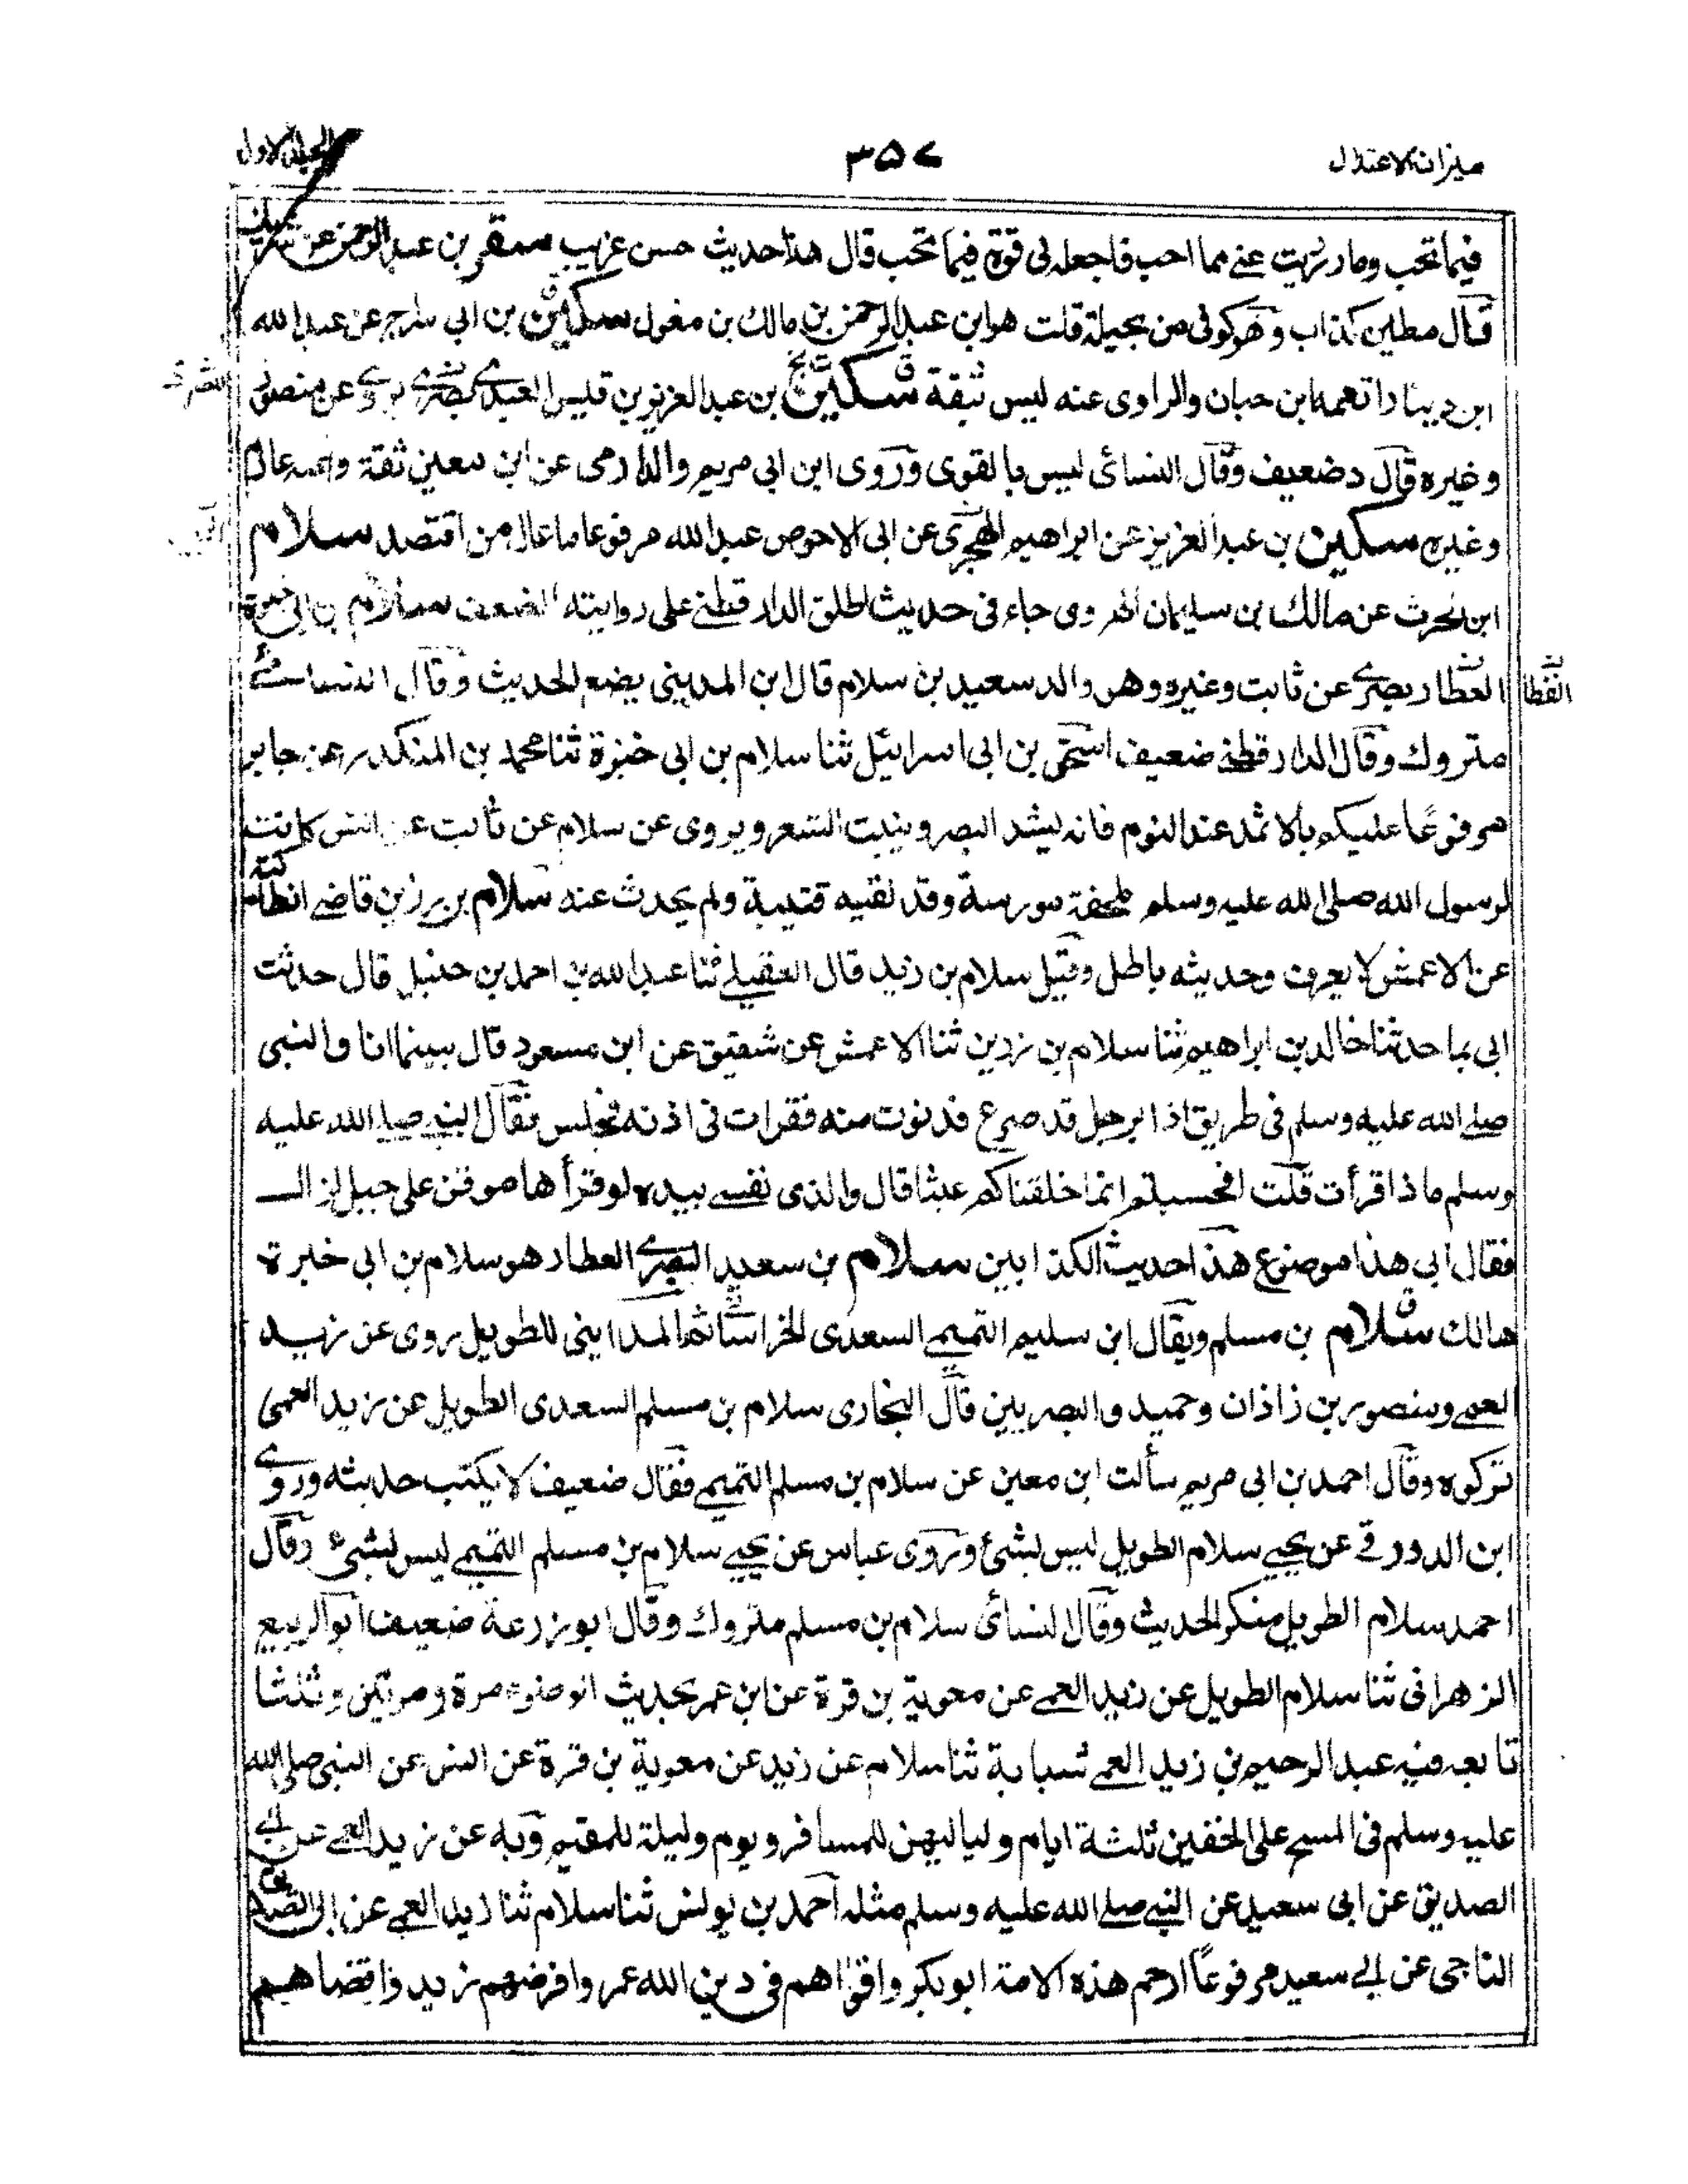 ميزان الاعتدال
٣٥٧
الجلد الاول
فيما تحب وما زويت عني مما احب فاجعله لي قوة فيما تحب قال هذا حديث حسن غريب سقر بن عبد الرحمن عن شريك
قال مطين كذاب وهو كوفي من بجيلة قلت هو ابن عبد الرحمن بن مالك بن مغول سكين بن ابي سراج عن عبد الله
ابن دينار اتهمه ابن حبان والراوي عنه ليس بثقة سكين بن عبد العزيز بن قيس العبدي بصري يروي عن
وغيره قال د ضعيف وقال النسائي ليس بالقوى وروى ابن ابي مريم والدارمي عن ابن معين ثقة
وغيره سكين بن عبد العزيز عن ابراهيم الهجري عن ابي الاحوص عبد الله مرفوعا ما عال من اقتصد سلام
ابن الحرث عن مالك بن سليمان الهروي جاء في حديث اطلق الدارقطني على روايته الضعف سلام بن ابي خبزة
العطار بصري عن ثابت وغيره وهو والد سعيد بن سلام قال ابن المديني يضع الحديث وقال النسائي
القطان
متروك وقال الدارقطني ضعيف اسحق بن ابي اسرائيل ثنا سلام بن ابي خبزة ثنا محمد بن المنكدر عن جابر
مرفوعا عليكم بالاثمد عند النوم فانه يشد البصر وينبت الشعر ويروى عن سلام عن ثابت عن انس كانت
لرسول الله صلى الله عليه وسلم ملحفة مورسة وقد لقيه قتيبة ولم يحدث عنه سلام بن رزين قاضي انطاكية
عن الاعمش لا يعرف وحديثه باطل وقيل سلام بن زيد قال العقيلي ثنا عبد الله بن احمد بن حنبل قال حدثت
ابي بما حدثنا خالد بن ابراهيم ثنا سلام بن رزين ثنا الاعمش عن شقيق عن ابن مسعود قال بينما انا والنبي
صلى الله عليه وسلم في طريق اذا برجل قد صرع فدنوت منه فقرات في اذنه فجلس فقال النبي صلى الله عليه
وسلم ماذا قرأت قلت افحسبتم انما خلقناكم عبثا قال والذي نفسي بيده لو قرأها موقن على جبل لزال
فقال ابي هذا موضوع هذا حديث الكذابين سلام بن سعيد البصري العطار هو سلام بن ابي خبزة
هالك سلام بن مسلم ويقال ابن سليم التميمي السعدي الخراساني ثم المدايني الطويل روى عن زيد
العمي ومنصور بن زاذان وحميد والبصريين قال البخاري سلام بن مسلم السعدي الطويل عن زيد العمي
تركوه وقال احمد بن ابي مريم سألت ابن معين عن سلام بن مسلم التميمي فقال ضعيف لا يكتب حديثه وروى
ابن الدورقي عن يحيى سلام الطويل ليس بشئ وروى عباس عن يحيى سلام بن مسلم التميمي ليس بشئ وقال
احمد سلام الطويل منكر الحديث وقال النسائي سلام بن مسلم متروك وقال ابو زرعة ضعيف ابو الربيع
الزهراني ثنا سلام الطويل عن زيد العمي عن معوية بن قرة عن ابن عمر بحديث الوضوء مرة ومرتين وثلثا
تابعه فيه عبد الرحيم بن زيد العمي شبابة ثنا سلام عن زيد عن معوية بن قرة عن انس عن النبي صلى الله
عليه وسلم في المسح على الخفين ثلثة ايام ولياليهن للمسافر ويوم وليلة للمقيم وبه عن زيد العمي عن ابي
الصديق عن ابي سعيد عن النبي صلى الله عليه وسلم مثله احمد بن يونس ثنا سلام ثنا زيد العمي عن ابي الصديق
الناجي عن ابي سعيد مرفوعاً ارحم هذه الامة ابو بكر واقواهم في دين الله عمر وافرضهم زيد واقضاهم